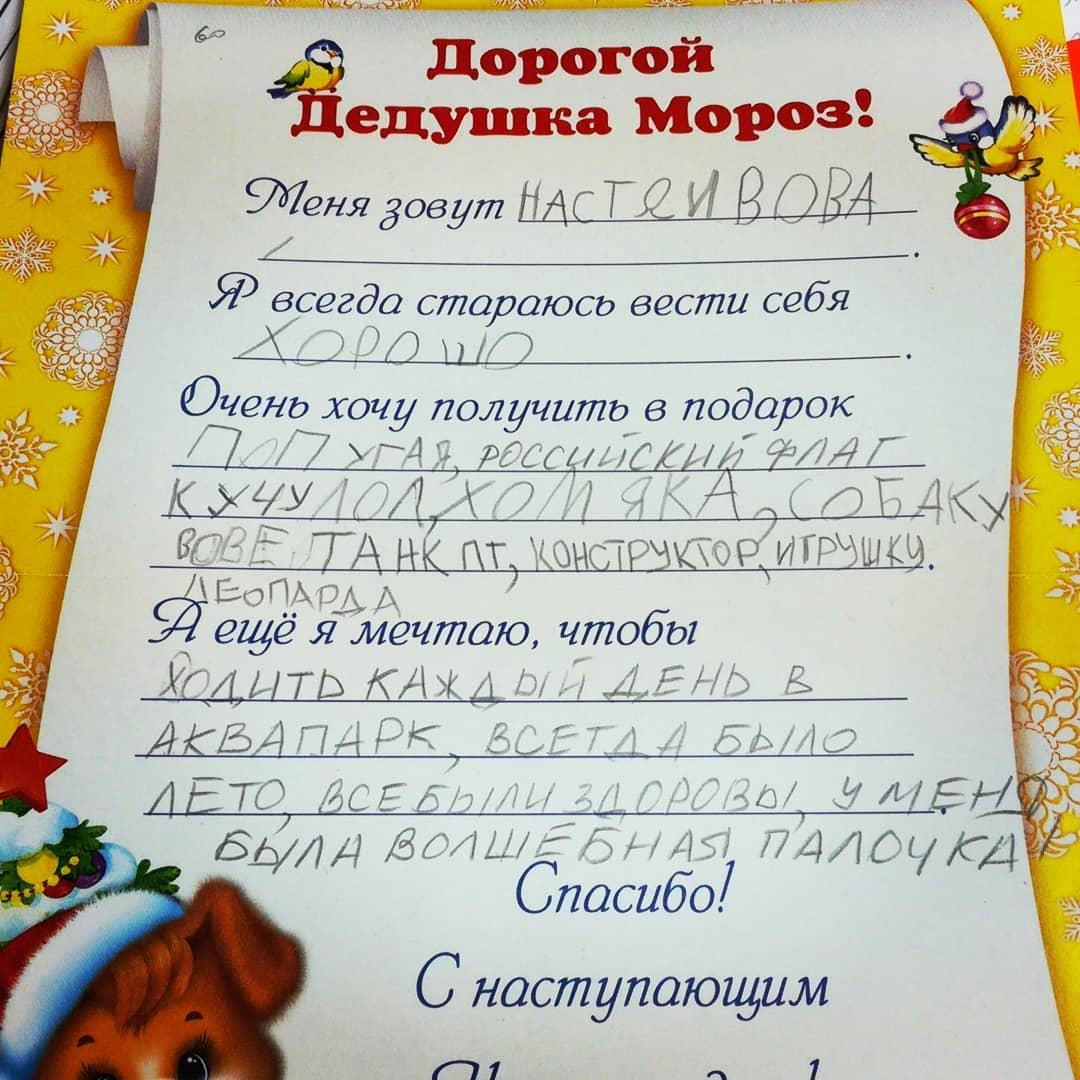 Дорогой
Дедушка Мороз!
Меня зовут НАСТЯ И ВОВА
.
Я всегда стараюсь вести себя
ХОРОШО.
Очень хочу получить в подарок
ПОПУГАЯ, РОССИЙСКИЙ ФЛАГ
КУЧУ ЛОЛ, ХОМЯКА, СОБАКУ
ВОВЕ ТАНК ПТ, КОНСТРУКТОР, ИГРУШКУ.
ЛЕОПАРДА
А ещё я мечтаю, чтобы
ХОДИТЬ КАЖДЫЙ ДЕНЬ В
АКВАПАРК, ВСЕГДА БЫЛО
ЛЕТО, ВСЕ БЫЛИ ЗДОРОВЫ, У МЕНЯ
БЫЛА ВОЛШЕБНАЯ ПАЛОЧКА
Спасибо!
С наступающим